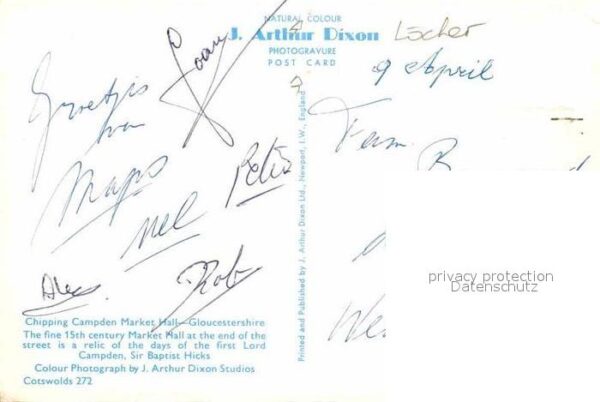 NATURAL COLOUR
J. Arthur Dixon
PHOTOGRAVURE
POST CARD
Locher
9 April
Groetjes
van
Joan
Maps
Nel
Petra
Alex
Rob
Fam.
B
We
privacy protection
Datenschutz
Printed and Published by J. Arthur Dixon Ltd., Newport, I.W., England
Chipping Campden Market Hall—Gloucestershire
The fine 15th century Market Hall at the end of the
street is a relic of the days of the first Lord
Campden, Sir Baptist Hicks
Colour Photograph by J. Arthur Dixon Studios
Cotswolds 272